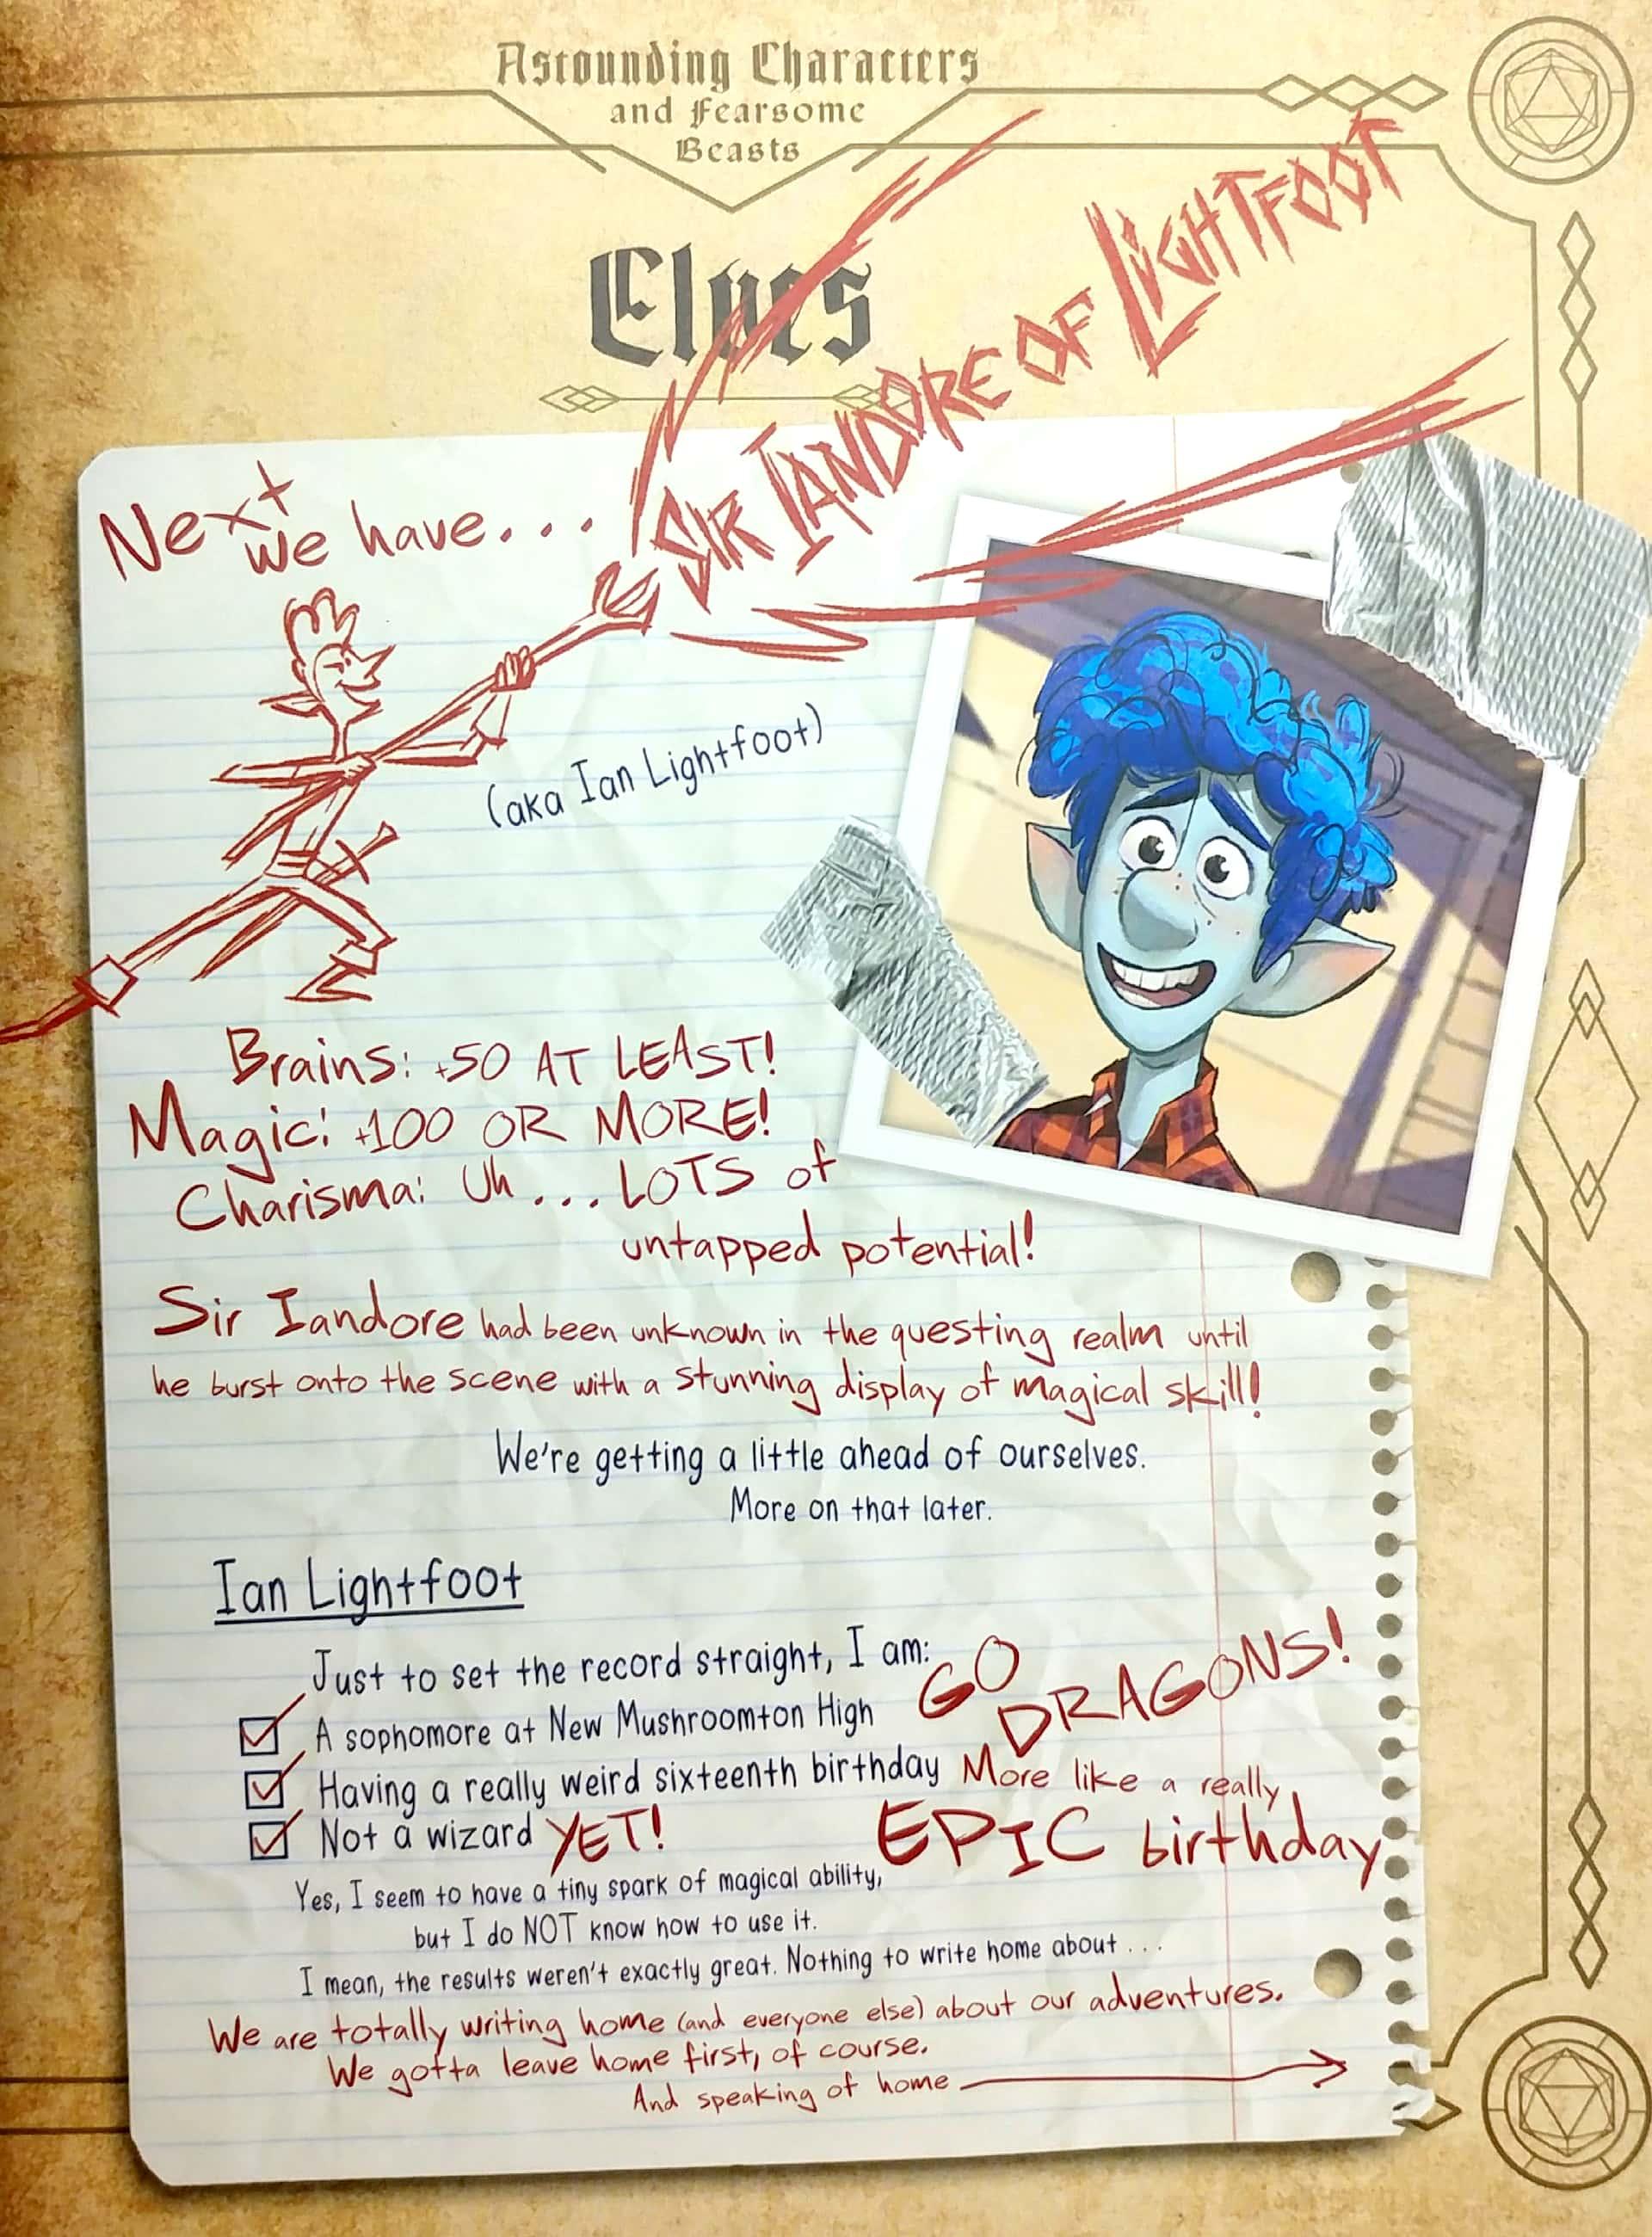 Astounding Characters
and Fearsome
Beasts
Elves
Next
we have...
SIR IANDORE OF LIGHTFOOT
(aka Ian Lightfoot)
Brains: +50 AT LEAST!
Magic: +100 OR MORE!
Charisma: Uh... LOTS of
untapped potential!
Sir Iandore had been unknown in the questing realm until
he burst onto the scene with a stunning display of magical skill!
We're getting a little ahead of ourselves.
More on that later.
Ian Lightfoot
Just to set the record straight, I am:
A sophomore at New Mushroomton High GO DRAGONS!
Having a really weird sixteenth birthday More like a really
EPIC birthday
Not a wizard YET!
Yes, I seem to have a tiny spark of magical ability,
but I do NOT know how to use it.
I mean, the results weren't exactly great. Nothing to write home about...
We are totally writing home (and everyone else) about our adventures.
We gotta leave home first, of course.
And speaking of home